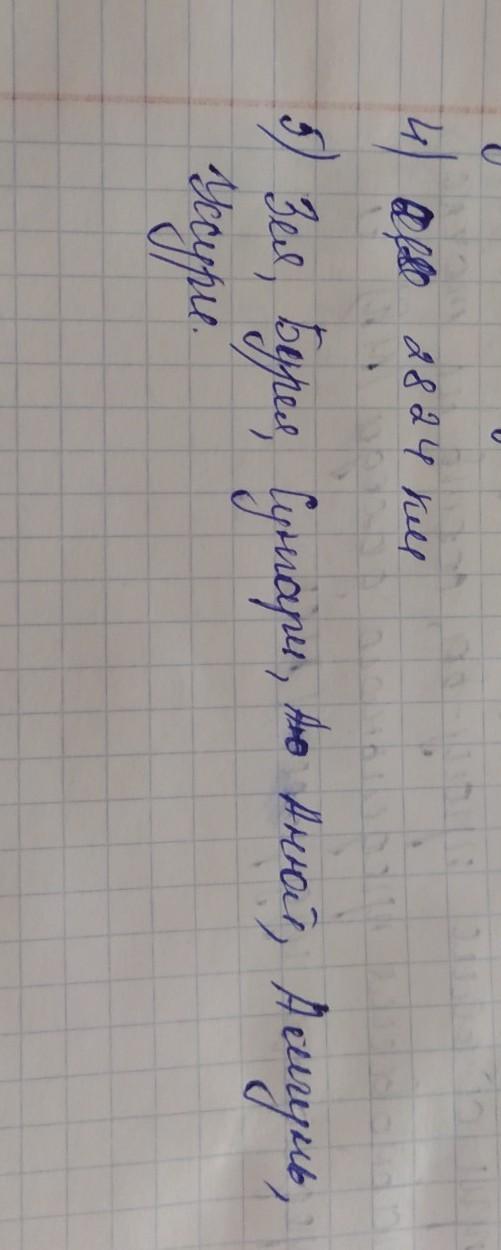 4) 2824 км
5) Зея, Бурея, Сунгари, Анюй, Амгунь,
Уссури.